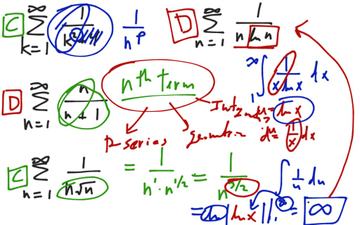 C ∑ k=1 ∞ 1/k 1/n^p D ∑ n=1 ∞ 1/(n ln n)
D ∑ n=1 ∞ n/(n+1) nth term ∫ 1 ∞ 1/(x ln x) dx
Integral u = ln x
P-series Geometric du = 1/x dx
C ∑ n=1 ∞ 1/(n√n) = 1/(n^1 · n^1/2) = 1/n^3/2 ∫ 1/u du
= ln |ln x| | 1 ∞ = ∞